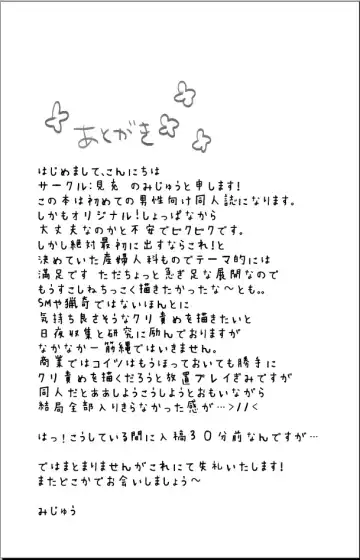 あとがき
はじめまして、こんにちは
サークル:見充 のみじゅうと申します!
この本は初めての男性向け同人誌になります。
しかもオリジナル!しょっぱなから
大丈夫なのかと不安でビクビクです。
しかし絶対最初に出すならこれ!と
決めていた産婦人科ものでテーマ的には
満足です ただちょっと急ぎ足な展開なので
もうすこしねちっこく描きたかったな〜とも。。
SMや猟奇ではないほんとに
気持ち良さそうなクリ責めを描きたいと
日夜収集と研究に励んでおりますが
なかなか一筋縄ではいきません。
商業ではコイツはもうほっておいても勝手に
クリ責めを描くだろうと放置プレイぎみですが
同人だとああしようこうしようとおもいながら
結局全部入りきらなかった感が…>//<
はっ!こうしている間に入稿30分前なんですが…
ではまとまりませんがこれにて失礼いたします!
またどこかでお会いしましょう〜
みじゅう